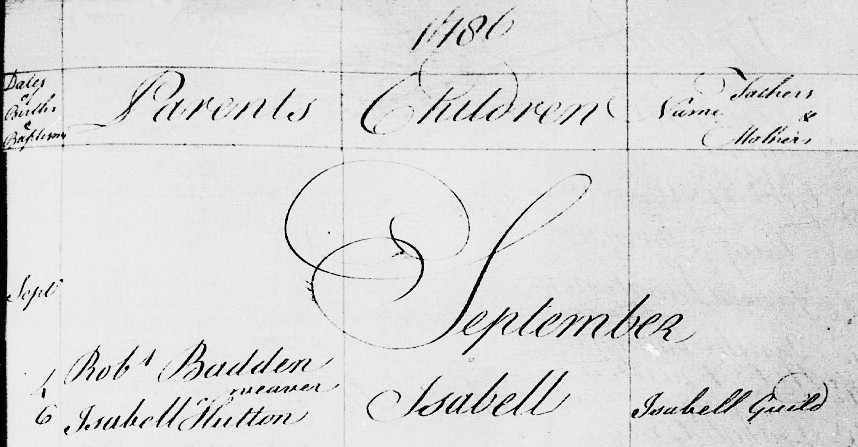 1786
Dates
of
Births
&
Baptisms
Parents
Children
Name
Fathers
&
Mothers
September
Sept
Robt Badden
weaver
4
6
Isabell Hutton
Isabell
Isabell Guild